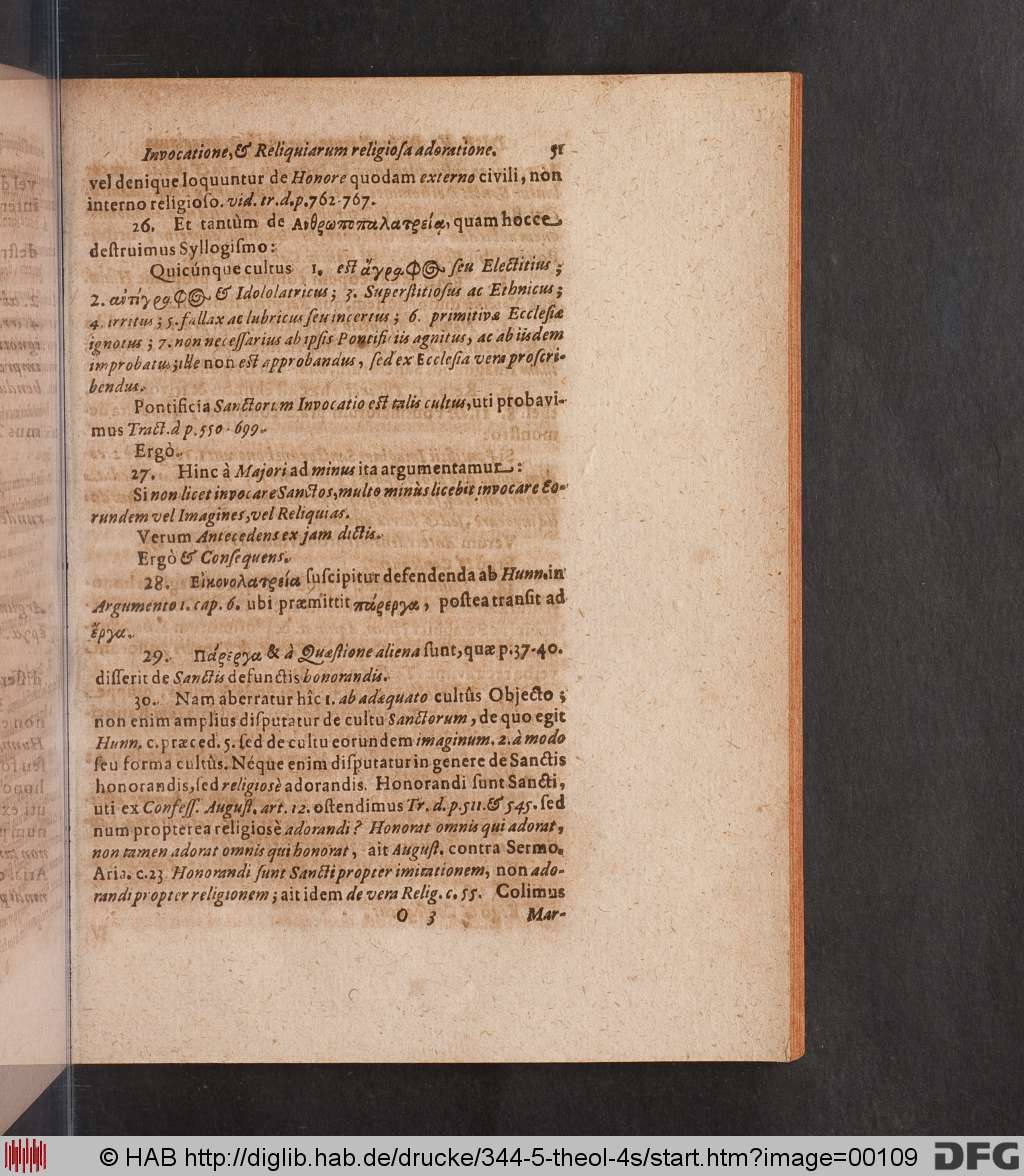 Invocatione, & Reliquiarum religiosa adoratione. 51
vel denique loquuntur de Honore quodam externo civili, non
interno religioso. vid. tr. d. p. 762-767.
26. Et tantùm de Ανθρωποπαλατρείᾳ, quam hocce
destruimus Syllogismo:
Quicúnque cultus 1. est ἄγραφος seu Electitius;
2. ἀντίγραφος & Idololatricus; 3. Superstitiosus ac Ethnicus;
4. irritus; 5. fallax ac lubricus seu incertus; 6. primitivæ Ecclesiæ
ignotus; 7. non necessarius ab ipsis Pontificiis agnitus, ac ab iisdem
improbatus; ille non est approbandus, sed ex Ecclesia vera proscri-
bendus.
Pontificia Sanctorum Invocatio est talis cultus, uti probavi-
mus Tract. à p. 550-699.
Ergò.
27. Hinc à Majori ad minus ita argumentamur:
Si non licet invocare Sanctos, multo minùs licebit invocare Eo-
rundem vel Imagines, vel Reliquias.
Verum Antecedens ex jam dictis.
Ergò & Consequens.
28. Εἰκονολατρεία suscipitur defendenda ab Hunn. in
Argumento 1. cap. 6. ubi præmittit πάρεργα, postea transit ad
ἔργα.
29. Πάρεργα & à Quæstione aliena sunt, quæ p. 37-40.
disserit de Sanctis defunctis honorandis.
30. Nam aberratur hîc 1. ab adæquato cultûs Objecto;
non enim amplius disputatur de cultu Sanctorum, de quo egit
Hunn. c. præced. 5. sed de cultu eorundem imaginum. 2. à modo
seu forma cultûs. Néque enim disputatur in genere de Sanctis
honorandis, sed religiosè adorandis. Honorandi sunt Sancti,
uti ex Confess. August. art. 12. ostendimus Tr. d. p. 511. & 545. sed
num propterea religiosè adorandi? Honorat omnis qui adorat,
non tamen adorat omnis qui honorat, ait August. contra Sermo.
Aria. c. 23 Honorandi sunt Sancti propter imitationem, non ado-
randi propter religionem; ait idem de vera Relig. c. 55. Colimus
O 3 Mar-
© HAB http://diglib.hab.de/drucke/344-5-theol-4s/start.htm?image=00109 DFG